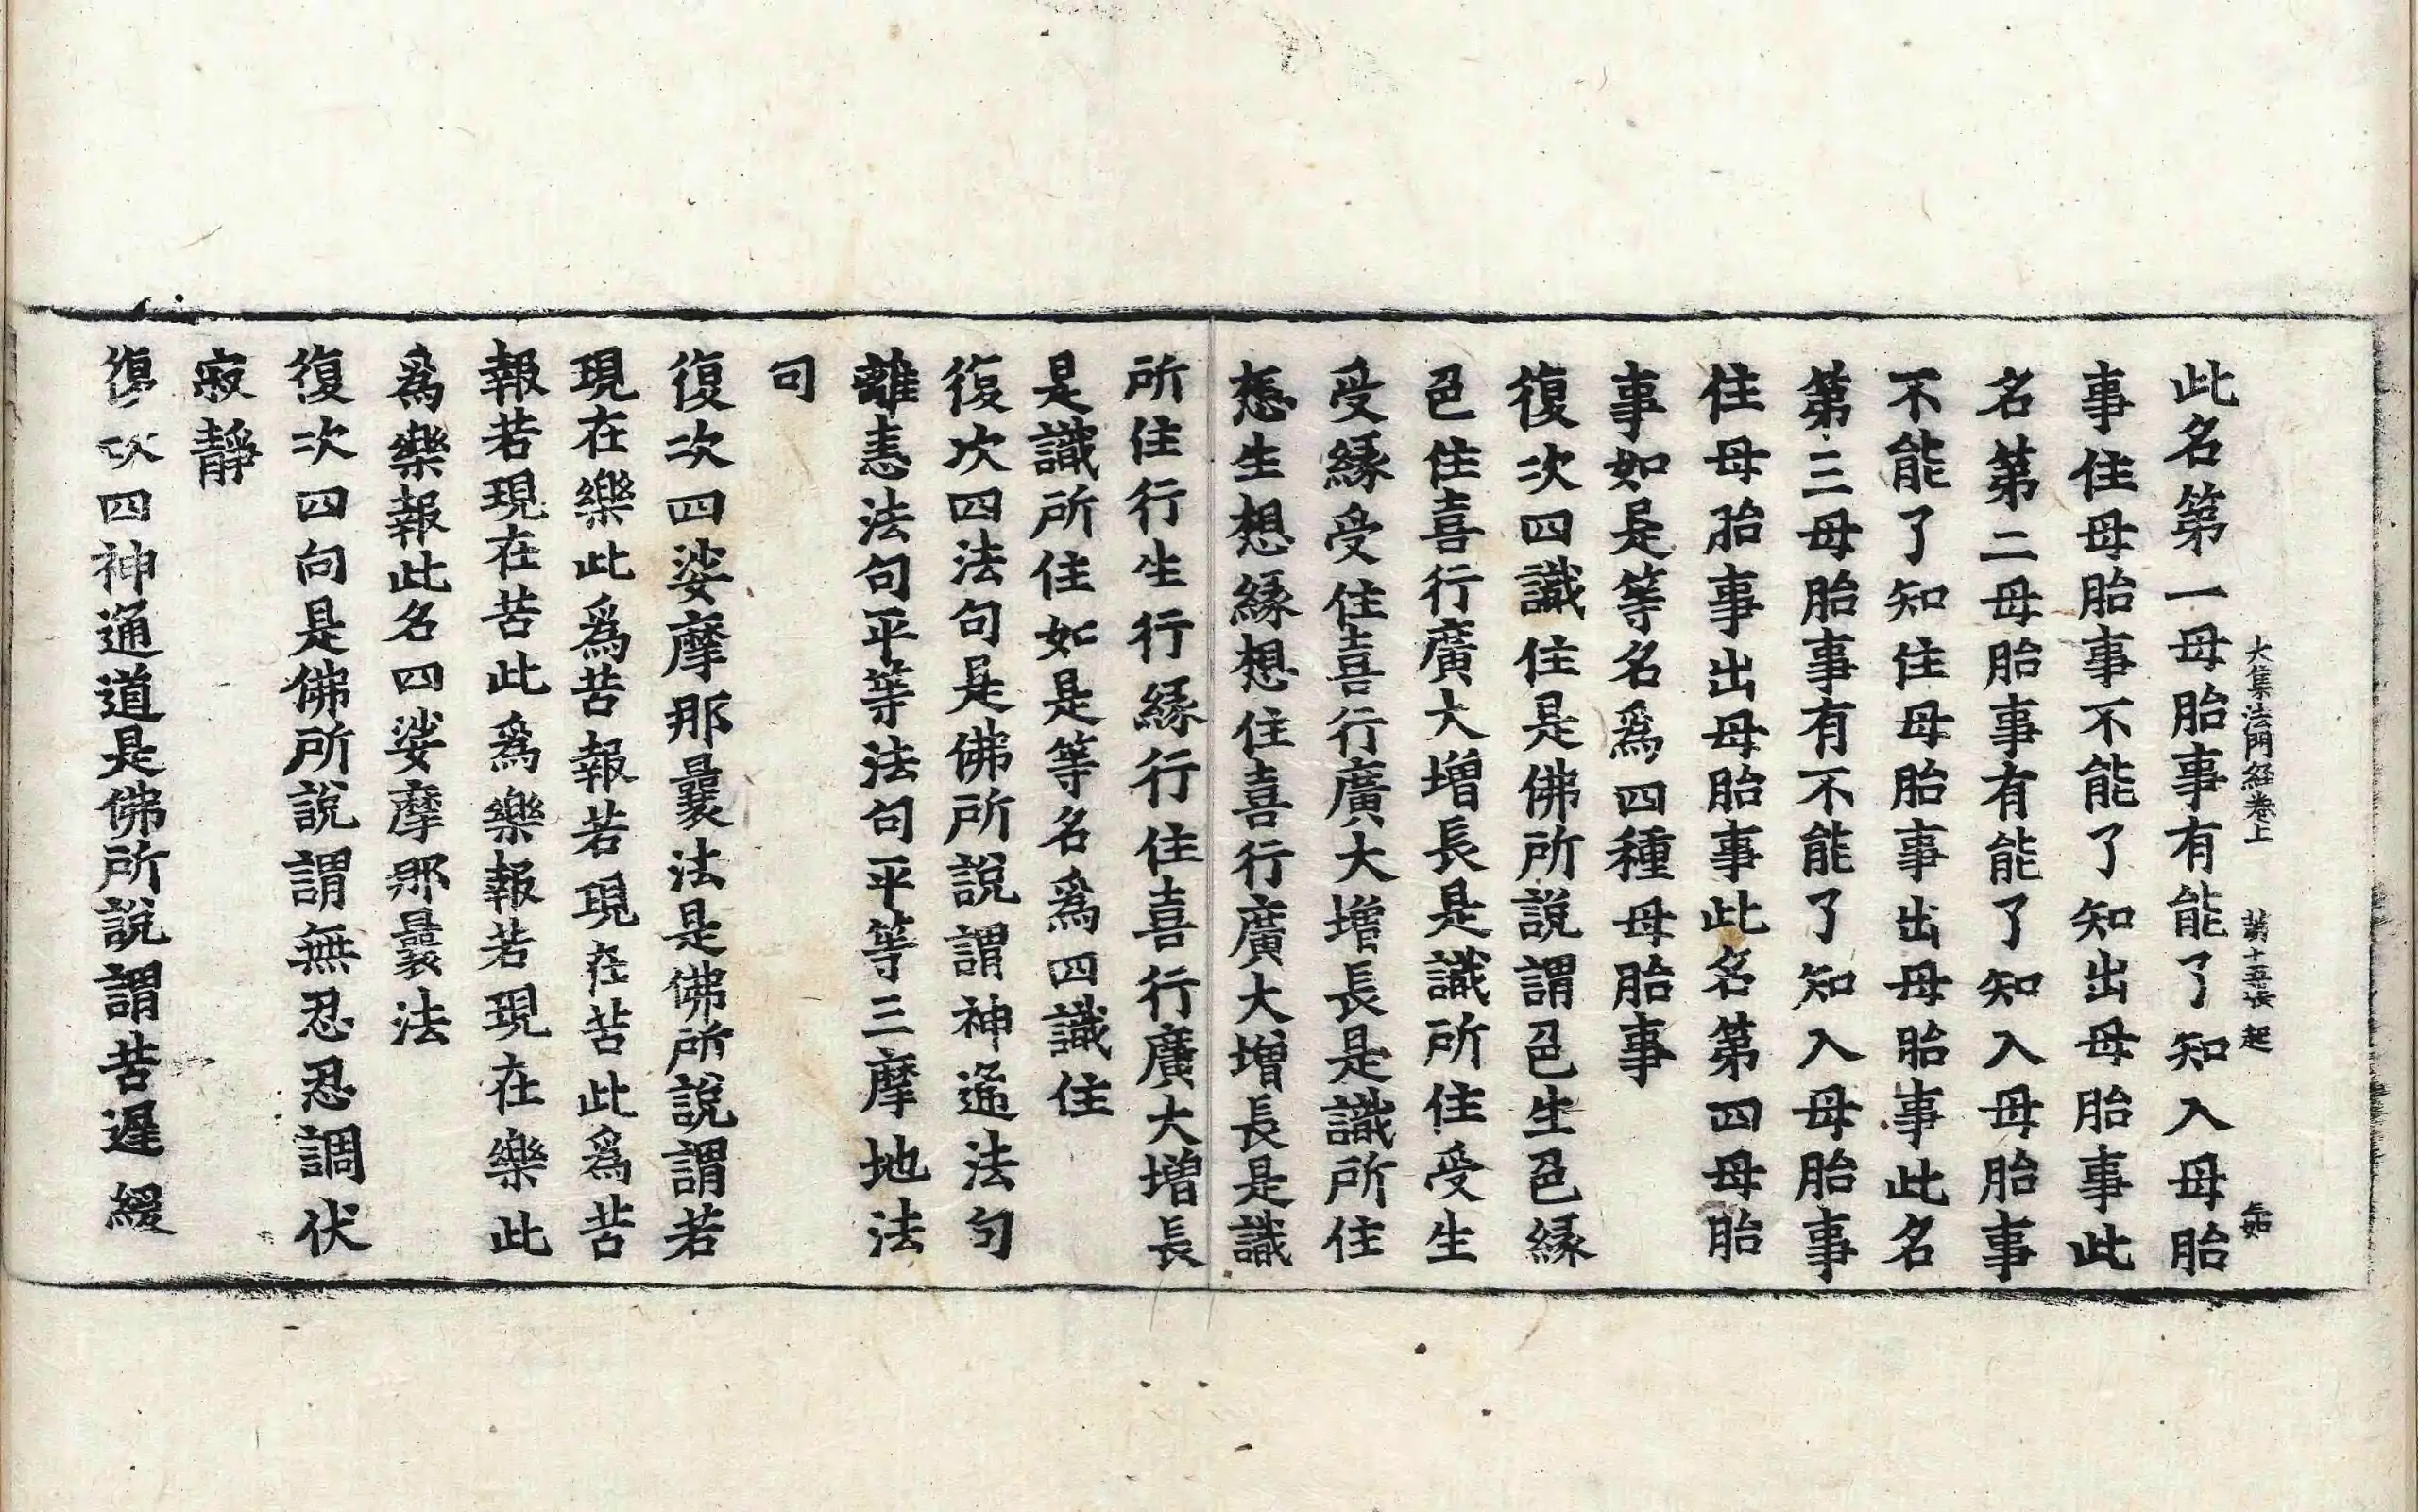 大集法門経卷上 第十五張 起
此名第一母胎事有能了知入母胎
事住母胎事不能了知出母胎事此
名第二母胎事有能了知入母胎事
不能了知住母胎事出母胎事此名
第三母胎事有不能了知入母胎事
住母胎事出母胎事此名第四母胎
事如是等名爲四種母胎事
復次四識住是佛所說謂色生色縁
色住喜行廣大增長是識所住受生
受縁受住喜行廣大增長是識所住
想生想縁想住喜行廣大增長是識
所住行生行縁行住喜行廣大增長
是識所住如是等名爲四識住
復次四法句是佛所說謂神遙法句
離恚法句平等法句平等三摩地法
句
復次四娑摩那曩法是佛所說謂若
現在樂此爲苦報若現在苦此爲苦
報若現在苦此爲樂報若現在樂此
爲樂報此名四娑摩那曩法
復次四向是佛所說謂無忍忍調伏
寂靜
復次四神通道是佛所說謂苦遲緩